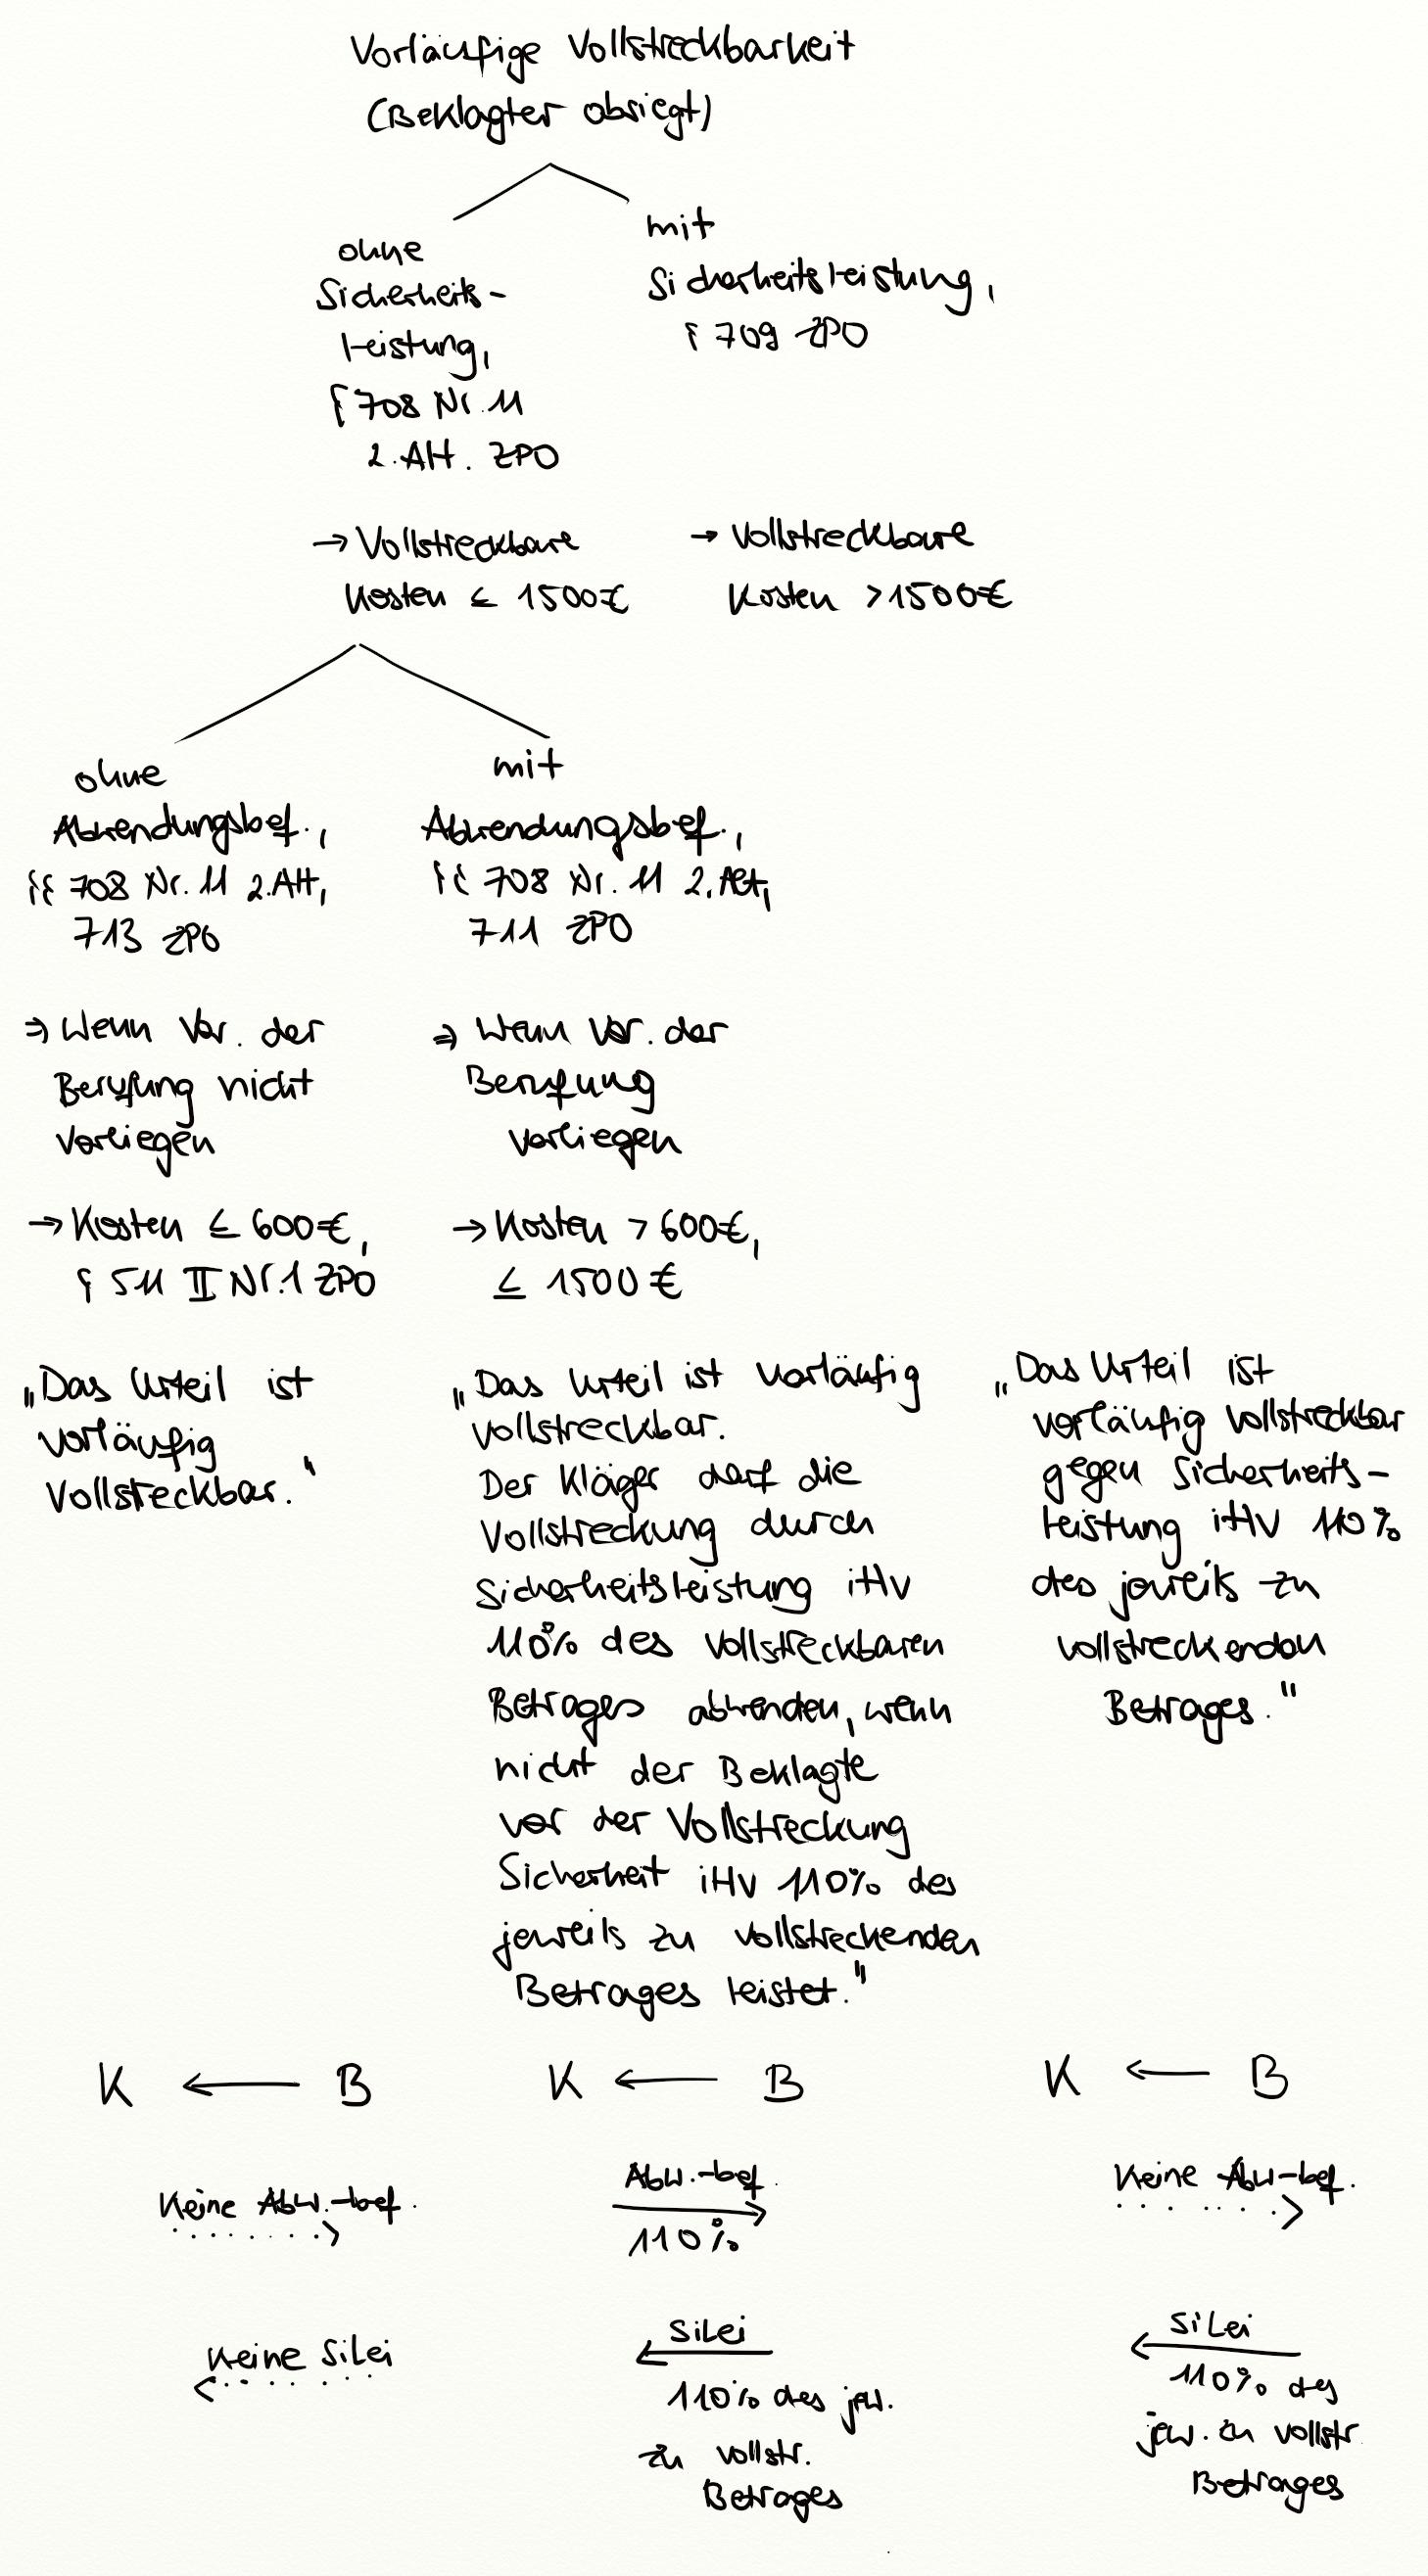 Vorläufige Vollstreckbarkeit
(Beklagter obsiegt)
ohne
Sicherheits-
leistung,
§ 708 Nr. 11
2. Alt. ZPO
→ Vollstreckbare
Kosten ≤ 1500€
mit
Sicherheitsleistung,
§ 709 ZPO
→ Vollstreckbare
Kosten > 1500€
ohne
Abwendungsbef.,
§§ 708 Nr. 11 2. Alt,
713 ZPO
⇒ Wenn Vor. der
Berufung nicht
vorliegen
→ Kosten ≤ 600€,
§ 511 II Nr. 1 ZPO
„Das Urteil ist
vorläufig
vollstreckbar."
K ← B
Keine Abw.-bef.
Keine SiLei
mit
Abwendungsbef.,
§§ 708 Nr. 11 2. Alt,
711 ZPO
⇒ Wenn Vor. der
Berufung
vorliegen
→ Kosten > 600€,
≤ 1500€
„Das Urteil ist vorläufig
vollstreckbar.
Der Kläger darf die
Vollstreckung durch
Sicherheitsleistung iHv
110% des vollstreckbaren
Betrages abwenden, wenn
nicht der Beklagte
vor der Vollstreckung
Sicherheit iHv 110% des
jeweils zu vollstreckenden
Betrages leistet."
K ← B
Abw.-bef.
110%
SiLei
110% des jew.
zu vollstr.
Betrages
„Das Urteil ist
vorläufig vollstreckbar
gegen Sicherheits-
leistung iHv 110%
des jeweils zu
vollstreckenden
Betrages."
K ← B
Keine Abw-bef.
SiLei
110% des
jew. zu vollstr.
Betrages